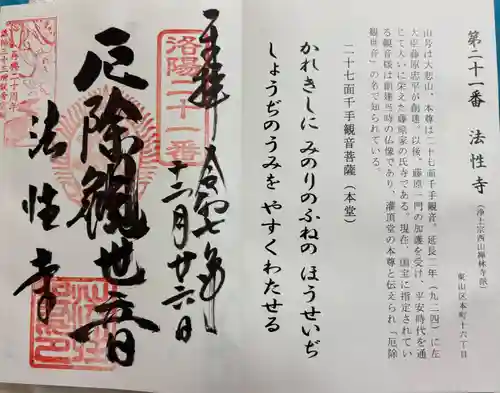 第二十一番 法性寺
(浄土宗西山禅林寺派)
東山区本町十六丁目
山号は大悲山、本尊は二十七面千手観音。延長二年(九二四)に左
大臣藤原忠平が創建。以後、藤原一門の加護を受け、平安時代を通
じて大いに栄えた藤原家の氏寺である。現在、国宝に指定されてい
る観音様は創建当時の仏像であり、灌頂堂の本尊と伝えられ「厄除
観世音」の名で知られている。
二十七面千手観音菩薩(本堂)
かれきしに みのりのふねの ほうせいぢ
しょうぢのうみを やすくわたせる
奉拝
令和七年
十二月廿六日
洛陽二十一番
厄除觀世音
法性寺